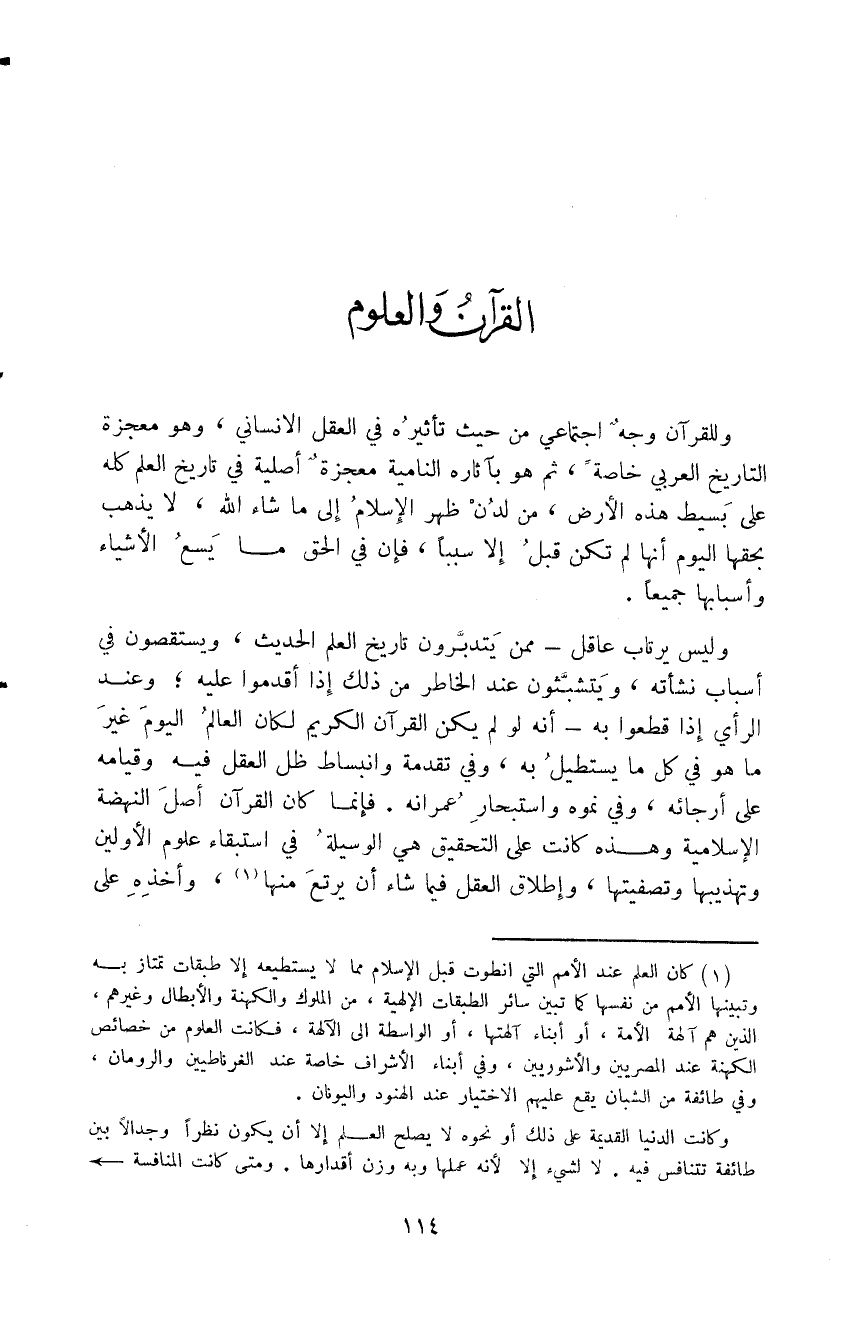 القرآنُ وَالعلوم
وللقرآن وجهٌ اجتماعي من حيث تأثيرُه في العقل الانساني ، وهو معجزة
التاريخ العربي خاصةً ، ثم هو بآثاره النامية معجزةٌ أصلية في تاريخ العلم كله
على بَسيط هذه الأرض ، من لدُنْ ظهر الإسلامُ إلى ما شاء الله ، لا يذهب
بحقها اليوم أنها لم تكن قبلُ إلا سبباً ، فإن في الحق مـا يَسعُ الأشياء
وأسبابها جميعاً .
وليس يرتاب عاقل – ممن يَتدبَّرون تاريخ العلم الحديث ، ويستقصون في
أسباب نشأته ، ويَتشبَّثون عند الخاطر من ذلك إذا أقدموا عليه ؛ وعنـد
الرأي إذا قطعوا به – أنه لو لم يكن القرآن الكريم لكان العالمُ اليومَ غيرَ
ما هو في كل ما يستطيلُ به ، وفي تقدمة وانبساط ظل العقل فيـه وقيامه
على أرجائه ، وفي نموه واستبحارِ ُعمرانه . فإنمـا كان القرآن أصلَ النهضة
الإسلامية وهـذه كانت على التحقيق هي الوسيلةُ في استبقاء علوم الأولين
وتهذيبها وتصفيتها ، وإطلاق العقل فيما شاء أن يرتعَ منها(١) ، وأخذِهِ على
(١) كان العلم عند الأمم التي انطوت قبل الإسلام مما لا يستطيعه إلا طبقات تمتاز بـه
وتبينها الأمم من نفسها كما تبين سائر الطبقات الإلهية ، من الملوك والكهنة والأبطال وغيرهم ،
الذين هم آلهة الأمة ، أو أبناء آلهتها ، أو الواسطة الى الآلهة ، فـكانت العلوم من خصائص
الكهنة عند المصريين والأشوريين ، وفي أبناء الأشراف خاصة عند الغرناطيين والرومان ،
وفي طائفة من الشبان يقع عليهم الاختيار عند الهنود واليونان .
وكانت الدنيا القديمة على ذلك أو نحوه لا يصلح العـلم إلا أن يكون نظراً وجدالاً بين
طائفة تتنافس فيه . لا لشيء إلا لأنه عملها وبه وزن أقدارها . ومتى كانت المنافسة ←
١١٤